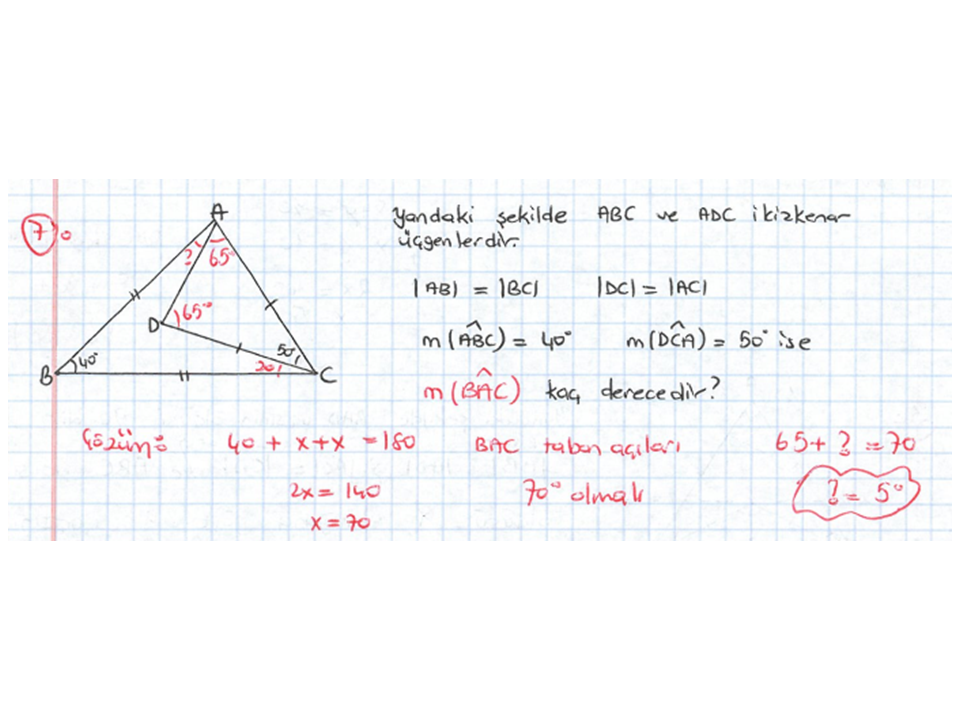 7)
Yandaki şekilde ABC ve ADC ikizkenar
üçgenlerdir.
|AB| = |BC| |DC| = |AC|
m(ABC) = 40° m(DCA) = 50° ise
m(BAC) kaç derecedir?
A
? 65
D 65°
B 40° 50° 20° C
Çözüm: 40 + x + x = 180 BAC taban açıları 65 + ? = 70
2x = 140 70° olmalı ? = 5°
x = 70